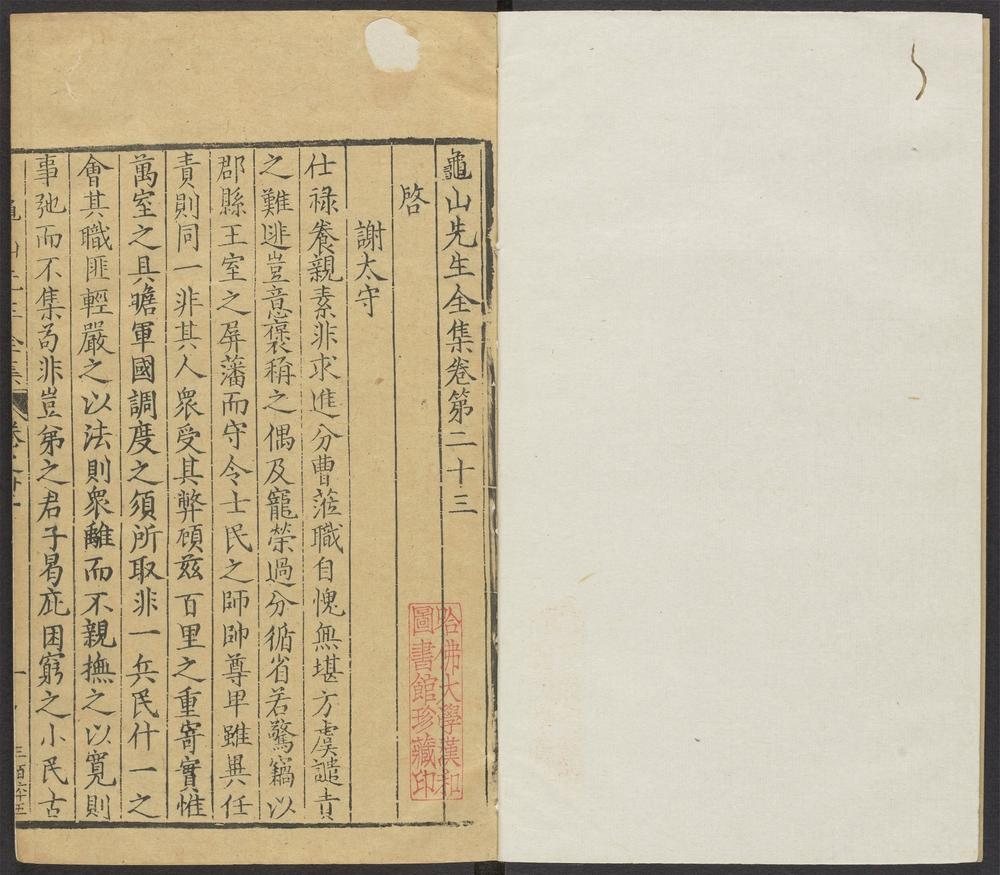 龜山先生全集卷第二十三
啓
謝太守
仕禄養親素非求進分曹蒞職自愧無堪方虞譴責
之難逃豈意褒稱之偶及寵榮過分循省若驚竊以
郡縣王室之屏藩而守令士民之師帥尊卑雖異任
責則同一非其人衆受其弊顧茲百里之重寄實惟
萬室之具瞻軍國調度之須所取非一兵民什一之
會其職匪輕嚴之以法則衆離而不親撫之以寬則
事弛而不集茍非豈弟之君子曷庇困窮之小民古
哈佛大學漢和
圖書館珍藏印